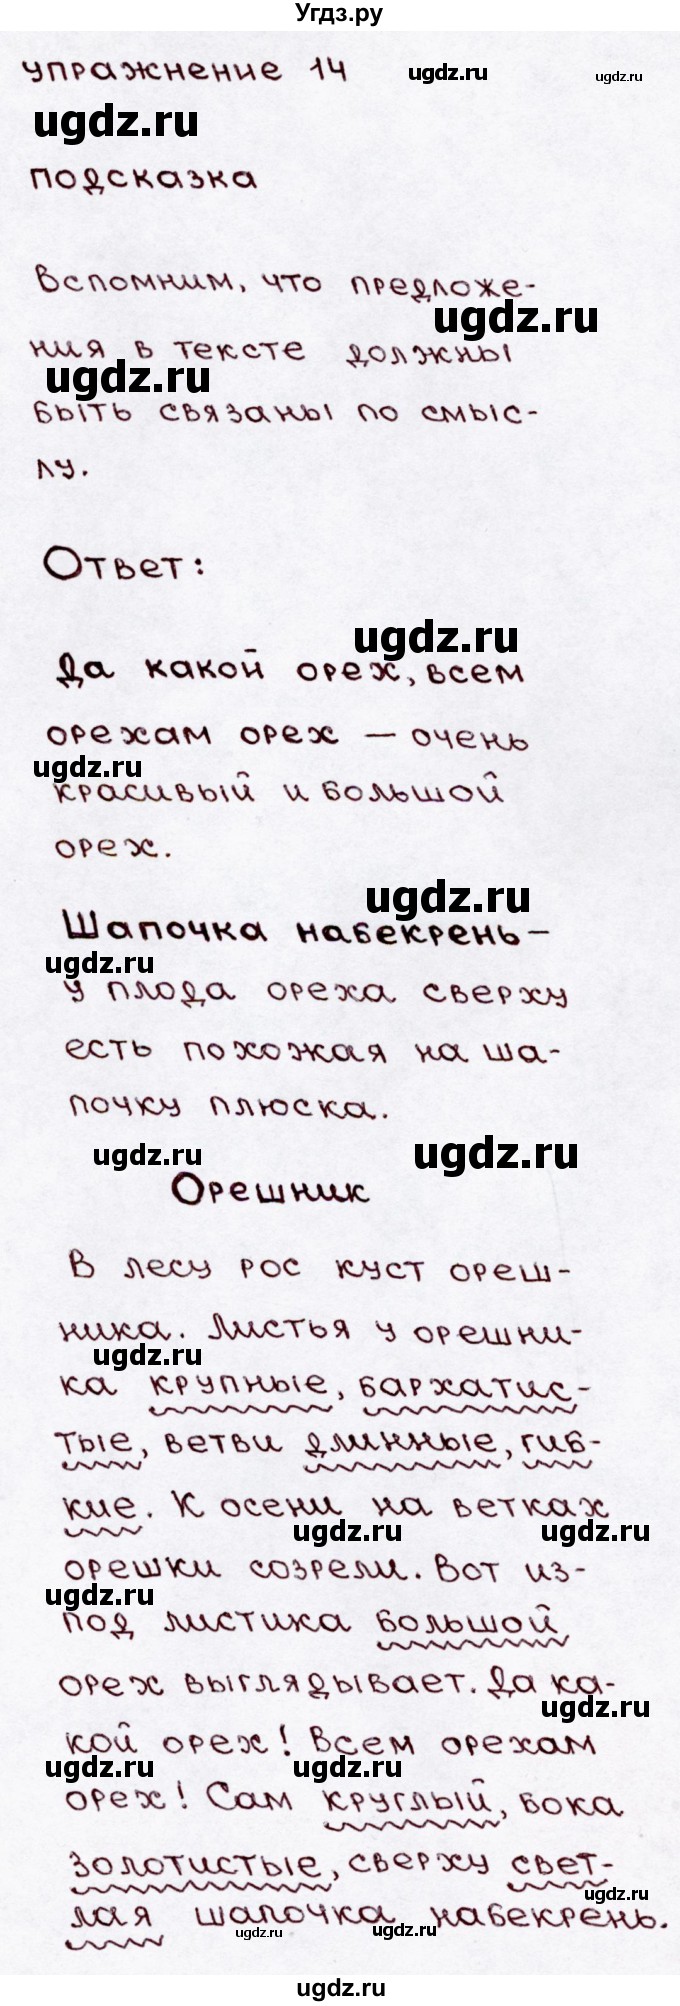 Угдз.ру
упражнение 14
ugdz.ru
ugdz.ru
ugdz.ru
подсказка
Вспомним, что предложе-
ugdz.ru
ния в тексте должны
ugdz.ru
быть связаны по смыс-
лу.
Ответ:
ugdz.ru
Да какой орех, всем
орехам орех – очень
ugdz.ru
красивый и большой
орех.
ugdz.ru
Шапочка набекрень –
ugdz.ru
у плода ореха сверху
есть похожая на ша-
почку плюска.
ugdz.ru
ugdz.ru
Орешник
В лесу рос куст ореш-
ника. Листья у орешни-
ugdz.ru
ка крупные, бархатис-
тые, ветви длинные, гиб-
кие. К осени на ветках
ugdz.ru
ugdz.ru
орешки созрели. Вот из-
ugdz.ru
под листика большой
орех выглядывает. Да ка-
ugdz.ru
кой орех! Всем орехам
ugdz.ru
ugdz.ru
орех! Сам круглый, бока
золотистые, сверху свет-
ugdz.ru
лая шапочка набекрень.
ugdz.ru
ugdz.ru
ugdz.ru